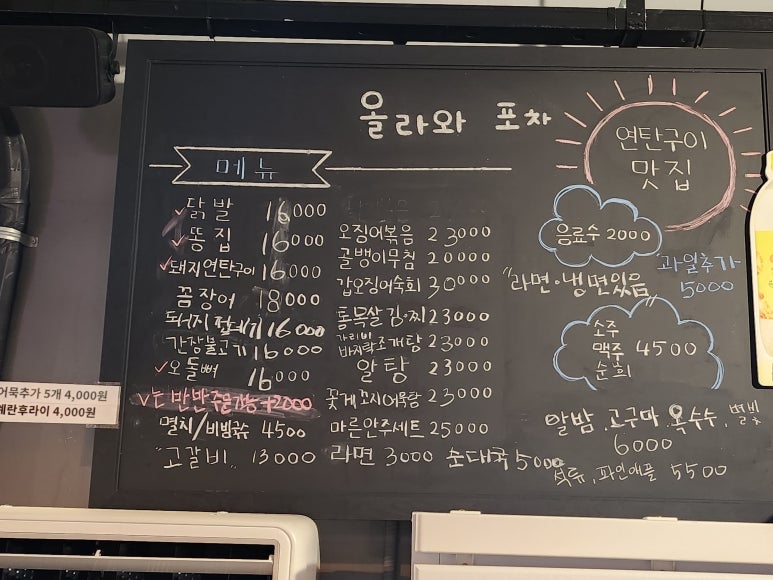 올라와 포차
연탄구이
맛집
메뉴
✓닭발 16000
✓똥집 16000
✓돼지연탄구이 16000
꼼장어 18000
돼지껍데기 16000
간장불고기 16000
✓오돌뼈 16000
✓는 반반주문가능 +2000
멸치/비빔국수 4500
"고갈비" 13000
오징어볶음 23000
골뱅이무침 20000
갑오징어숙회 30000
통목살김.찌 23000
가리비
바지락조개탕 23000
알탕 23000
꽃게 소시어묵탕 23000
마른안주세트 25000
라면 3000 순대국 5000
음료수 2000
"라면·냉면있음
과일추가
5000
소주
맥주 4500
순희
알밤.고구마.옥수수.별빛
6000
석류,파인애플 5500
어묵추가 5개 4,000원
계란후라이 4,000원